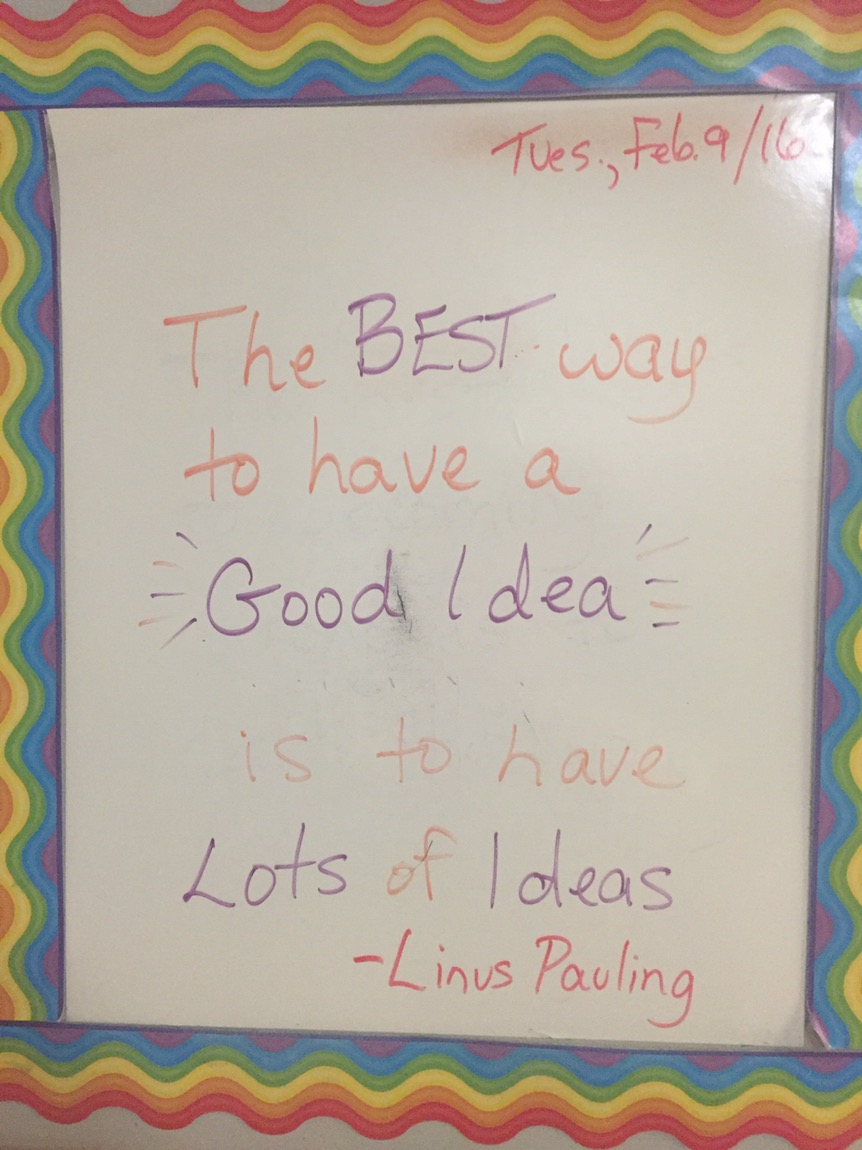 Tues., Feb. 9/16
The BEST way
to have a
Good Idea
is to have
Lots of Ideas
-Linus Pauling